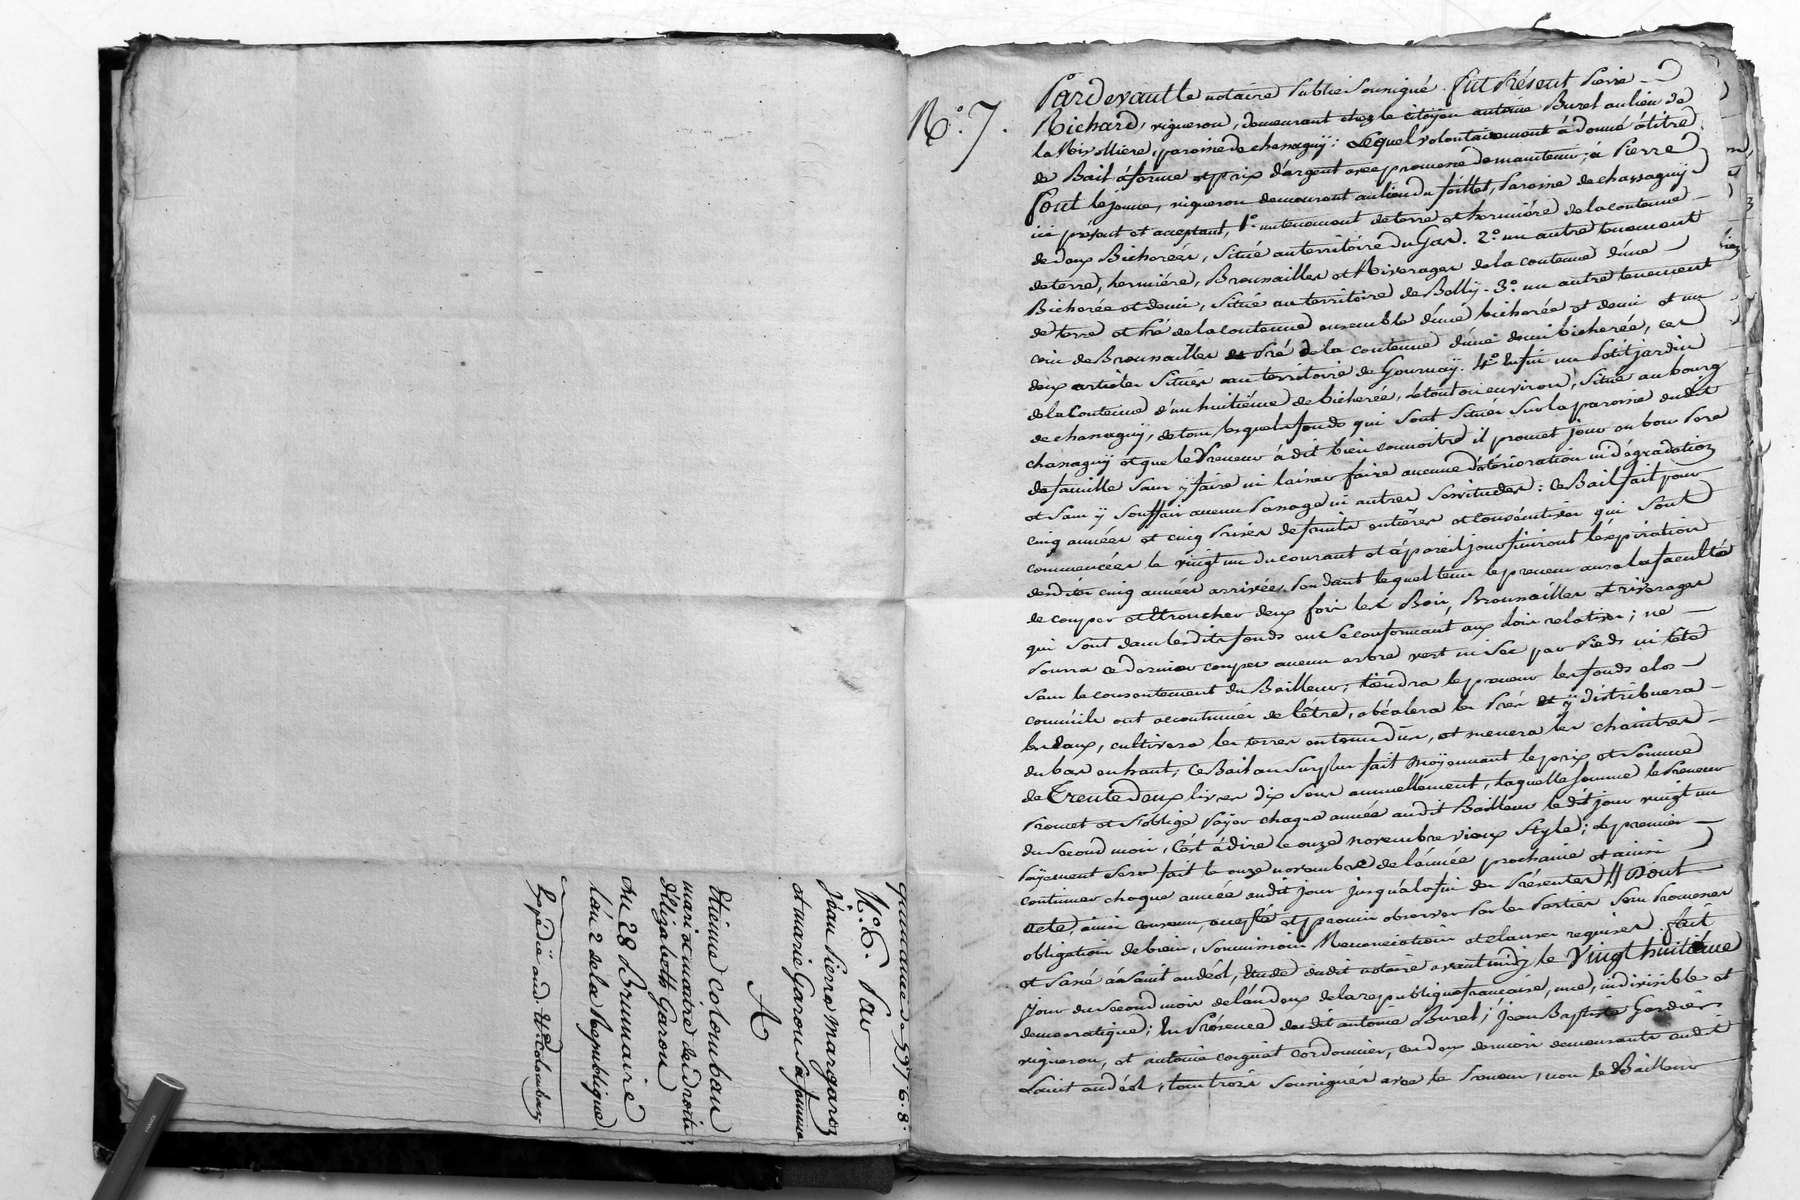 Quittance de 3176.8.
N.o 6. Par
Jean Pierre margaron
et marie Garon sa femme
A
Etienne Colomban
mari et maitre des droits
d'Elizabeth Garon
du 28 Brumaire
l'an 2 de la Republique
Expédié aud. Et. Colomban
N.o 7.
Pardevant le notaire Public soussigné. fut Présent Pierre
Richard, vigneron, demeurant chez le citoyen antoine Buret au lieu de
la Rivolliere, paroisse de chassagny: Lequel volontairement à donné à titre
de Bail à ferme et prix d'argent avec promesse de maintenir, à Pierre
Font le jeune, vigneron demeurant au lieu du foillet, Paroisse de chassagny
ici présent et acceptant, 1.o un tenement de terre et hermiére de la contenue
de deux Bicherées, Situé au territoire du Gas. 2.o un autre tenement
de terre, hermiére, Broussailles et Rivorages de la contenue d'une
Bicherée et demie, située au territoire de Bolly. 3.o un autre tenement
de terre et Pré de la contenue ensemble d'une bicherée et demi et un
coin de Broussailles et Pré de la contenue d'une demi bicherée, ces
deux articles Situés au territoire de Gournay. 4.o Enfin un Petit jardin
de la Contenue d'un huitiéme de bicherée, le tout ou environ, Situé au bourg
de chassagny, de tous lesquels fonds qui Sont Situés Sur la paroisse dudit
chassagny et que le Preneur à dit bien connoitre il promet jouir en bon Pere
de famille Sans y faire ni laisser faire aucune détérioration ni dégradation
et Sans y Souffrir aucun Passage ni autres Servitudes: ce Bail fait pour
cinq années et cinq Prises de fruits entiéres et consécutives qui Sont
commencées le vingt un du courant et à pareil jour finiront l'expiration
desdites cinq années arrivée. Pendant lequel tems le preneur aura la faculté
de couper et ébrancher deux fois les Bois, Broussailles et rivorages
qui Sont dans lesdits fonds en Se conformant aux Lois relatives; ne
Pourra ce dernier couper aucun arbre vert ni Sec par Pieds ni tete
Sans le consentement du Bailleur; tiendra le preneur les fonds clos
comm'ils ont accoutumés de l'être, abéalera les Prés et y distribuera
les Eaux, cultivera les terres en tems dus, et menera les chaintres
du bas en haut, Ce Bail au Surplus fait moyennant le prix et Somme
de Trente Deux livres dix Sous annuellement, laquelle Somme le Preneur
Promet et S'oblige Payer chaque année audit Bailleur ledit jour vingt un
du Second mois, C'est à dire le onze novembre vieux Style; le premier
Payement Sera fait le onze novembre de l'année prochaine et ainsi
continuer chaque année audit jour jusqu'à la fin des Présentes // Dont
acte, ainsi convenu, accepté et promis observer Par les Parties Sous Promesses
obligation de biens, Soumissions Renonciations et clauses requises. fait
et Passé à Saint andéol, Etude dudit notaire avant midy le Vingt huitiéme
jour du Second mois de l'an deux de la republique francaise, une, indivisible et
democratique; En Présence dudit antoine Buret; Jean Baptiste Gardier
vigneron, et antoine coignet cordonnier, ces deux derniers demeurants audit
Saint andéol; tous trois Soussignés avec le Preneur, non le Bailleur